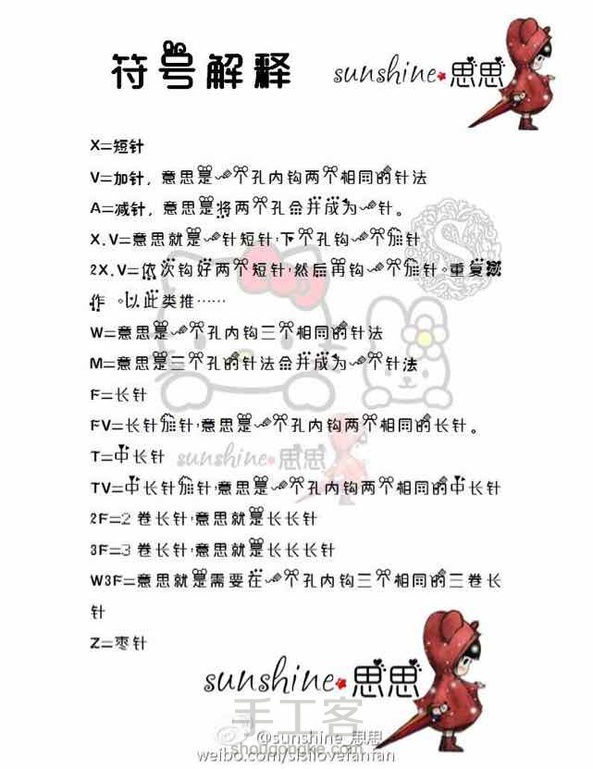 符号解释
sunshine 思思
X=短针
V=加针，意思是一个孔内钩两个相同的针法
A=减针，意思是将两个孔合并成为一针。
X.V=意思就是一针短针,下个孔钩一个加针
2X.V=依次钩好两个短针,然后再钩一个加针。重复操
作 。以此类推……
W=意思是一个孔内钩三个相同的针法
M=意思是三个孔的针法合并成为一个针法
F=长针
FV=长针加针,意思是一个孔内钩两个相同的长针。
T=中长针
sunshine 思思
TV=中长针加针,意思是一个孔内钩两个相同的中长针
2F=2 卷长针,意思就是长长针
3F=3 卷长针,意思就是长长长针
W3F=意思就是需要在一个孔内钩三个相同的三卷长
针
Z=枣针
sunshine 思思
手工客
@sunshine_思思
shougongke.com
weibo.com/sisilovefanfan